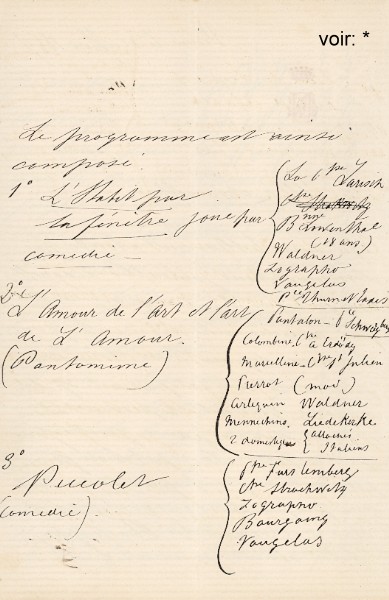 voir: *
Le programme est ainsi
composé.
1° L'Habit par
la fenêtre joué par
comédie
La Csse Larisch
Bonne Löwenthal
(18 ans)
Waldner
Zographo
Vaugelas
Pce Thurn et Taxis
2° L'Amour de l'art et l'art
de L'Amour.
(Pantomime)
Pantalon - 
Colombine
Marcelline - St Julien
Pierrot (moi)
Arlequin Waldner
Mennechino Liedekerke
2 domestiques { attachés
{ Italiens
3° Piccolet
(comédie).
Furstemberg
Ctsse Strachwitz
Zographo
Bourgoing
Vaugelas